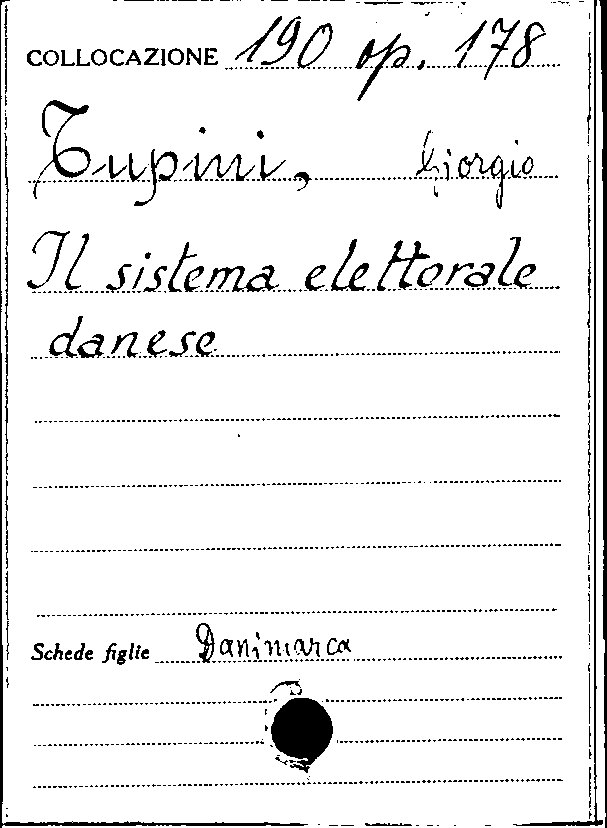 COLLOCAZIONE 190 op. 178
Tupini, Giorgio
Il sistema elettorale
danese
Schede figlie Danimarca